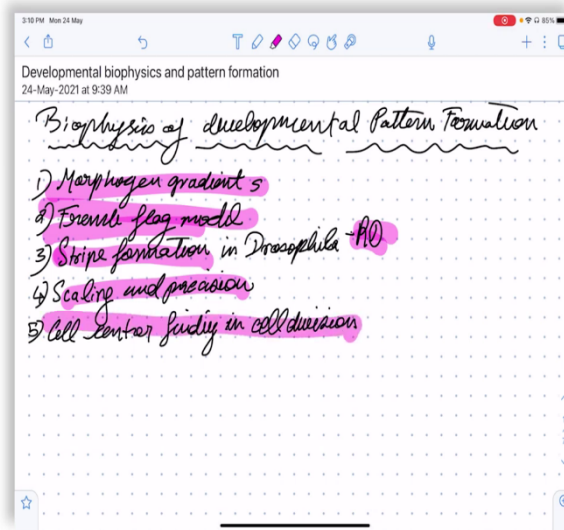 3:10 PM Mon 24 May
85%
Developmental biophysics and pattern formation
24-May-2021 at 9:39 AM
Biophysics of developmental Pattern Formation
1) Morphogen gradients
2) French flag model
3) Stripe formation in Drosophila - RD
4) Scaling and precision
5) Cell center finding in cell division